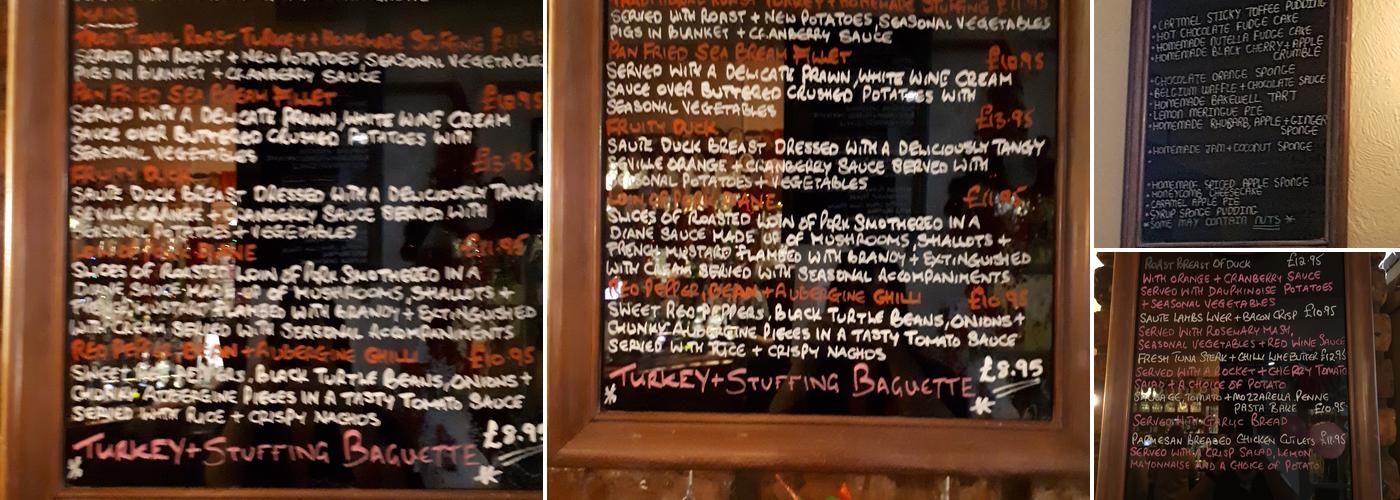 MAINS
TRADITIONAL ROAST TURKEY + HOMEMADE STUFFING £11.95
SERVED WITH ROAST + NEW POTATOES, SEASONAL VEGETABLES
PIGS IN BLANKET + CRANBERRY SAUCE
PAN FRIED SEA BREAM FILLET £10.95
SERVED WITH A DELICATE PRAWN, WHITE WINE CREAM
SAUCE OVER BUTTERED CRUSHED POTATOES WITH
SEASONAL VEGETABLES £13.95
FRUITY DUCK
SAUTE DUCK BREAST DRESSED WITH A DELICIOUSLY TANGY
SEVILLE ORANGE + CRANBERRY SAUCE SERVED WITH
SEASONAL POTATOES + VEGETABLES
LOIN OF PORK DIANE £11.95
SLICES OF ROASTED LOIN OF PORK SMOTHERED IN A
DIANE SAUCE MADE UP OF MUSHROOMS, SHALLOTS +
FRENCH MUSTARD FLAMBED WITH BRANDY + EXTINGUISHED
WITH CREAM SERVED WITH SEASONAL ACCOMPANIMENTS
RED PEPPER, BEAN + AUBERGINE CHILLI £10.95
SWEET RED PEPPERS, BLACK TURTLE BEANS, ONIONS +
CHUNKY AUBERGINE PIECES IN A TASTY TOMATO SAUCE
SERVED WITH RICE + CRISPY NACHOS
TURKEY + STUFFING BAGUETTE £8.95
TRADITIONAL ROAST TURKEY + HOMEMADE STUFFING £11.95
SERVED WITH ROAST + NEW POTATOES, SEASONAL VEGETABLES
PIGS IN BLANKET + CRANBERRY SAUCE
PAN FRIED SEA BREAM FILLET £10.95
SERVED WITH A DELICATE PRAWN, WHITE WINE CREAM
SAUCE OVER BUTTERED CRUSHED POTATOES WITH
SEASONAL VEGETABLES
FRUITY DUCK £13.95
SAUTE DUCK BREAST DRESSED WITH A DELICIOUSLY TANGY
SEVILLE ORANGE + CRANBERRY SAUCE SERVED WITH
SEASONAL POTATOES + VEGETABLES
LOIN OF PORK DIANE £11.95
SLICES OF ROASTED LOIN OF PORK SMOTHERED IN A
DIANE SAUCE MADE UP OF MUSHROOMS, SHALLOTS +
FRENCH MUSTARD FLAMBED WITH BRANDY + EXTINGUISHED
WITH CREAM SERVED WITH SEASONAL ACCOMPANIMENTS
RED PEPPER, BEAN + AUBERGINE CHILLI £10.95
SWEET RED PEPPERS, BLACK TURTLE BEANS, ONIONS +
CHUNKY AUBERGINE PIECES IN A TASTY TOMATO SAUCE
SERVED WITH RICE + CRISPY NACHOS
* TURKEY + STUFFING BAGUETTE * £8.95
• CARTMEL STICKY TOFFEE PUDDING
• HOT CHOCOLATE FUDGE CAKE
• HOMEMADE NUTELLA FUDGE CAKE
• HOMEMADE BLACK CHERRY + APPLE
CRUMBLE
• CHOCOLATE ORANGE SPONGE
• BELGIUM WAFFLE + CHOCOLATE SAUCE
• HOMEMADE BAKEWELL TART
• LEMON MERINGUE PIE
• HOMEMADE RHUBARB, APPLE + GINGER
SPONGE
• HOMEMADE JAM + COCONUT SPONGE
• HOMEMADE SPICED APPLE SPONGE
• HONEYCOMB CHEESECAKE
• CARAMEL APPLE PIE
• SYRUP SPONGE PUDDING
* SOME MAY CONTAIN NUTS *
ROAST BREAST OF DUCK £12.95
WITH ORANGE + CRANBERRY SAUCE
SERVED WITH DAUPHINOISE POTATOES
+ SEASONAL VEGETABLES
SAUTE LAMBS LIVER + BACON CRISP £10.95
SERVED WITH ROSEMARY MASH,
SEASONAL VEGETABLES + RED WINE SAUCE
FRESH TUNA STEAK + CHILLI LIME BUTTER £12.95
SERVED WITH A ROCKET + CHERRY TOMATO
SALAD + A CHOICE OF POTATO
SAUSAGE, TOMATO + MOZZARELLA PENNE
PASTA BAKE £10.95
SERVED WITH GARLIC BREAD
PARMESAN BREADED CHICKEN CUTLETS £11.95
SERVED WITH A CRISP SALAD, LEMON
MAYONNAISE AND A CHOICE OF POTATO